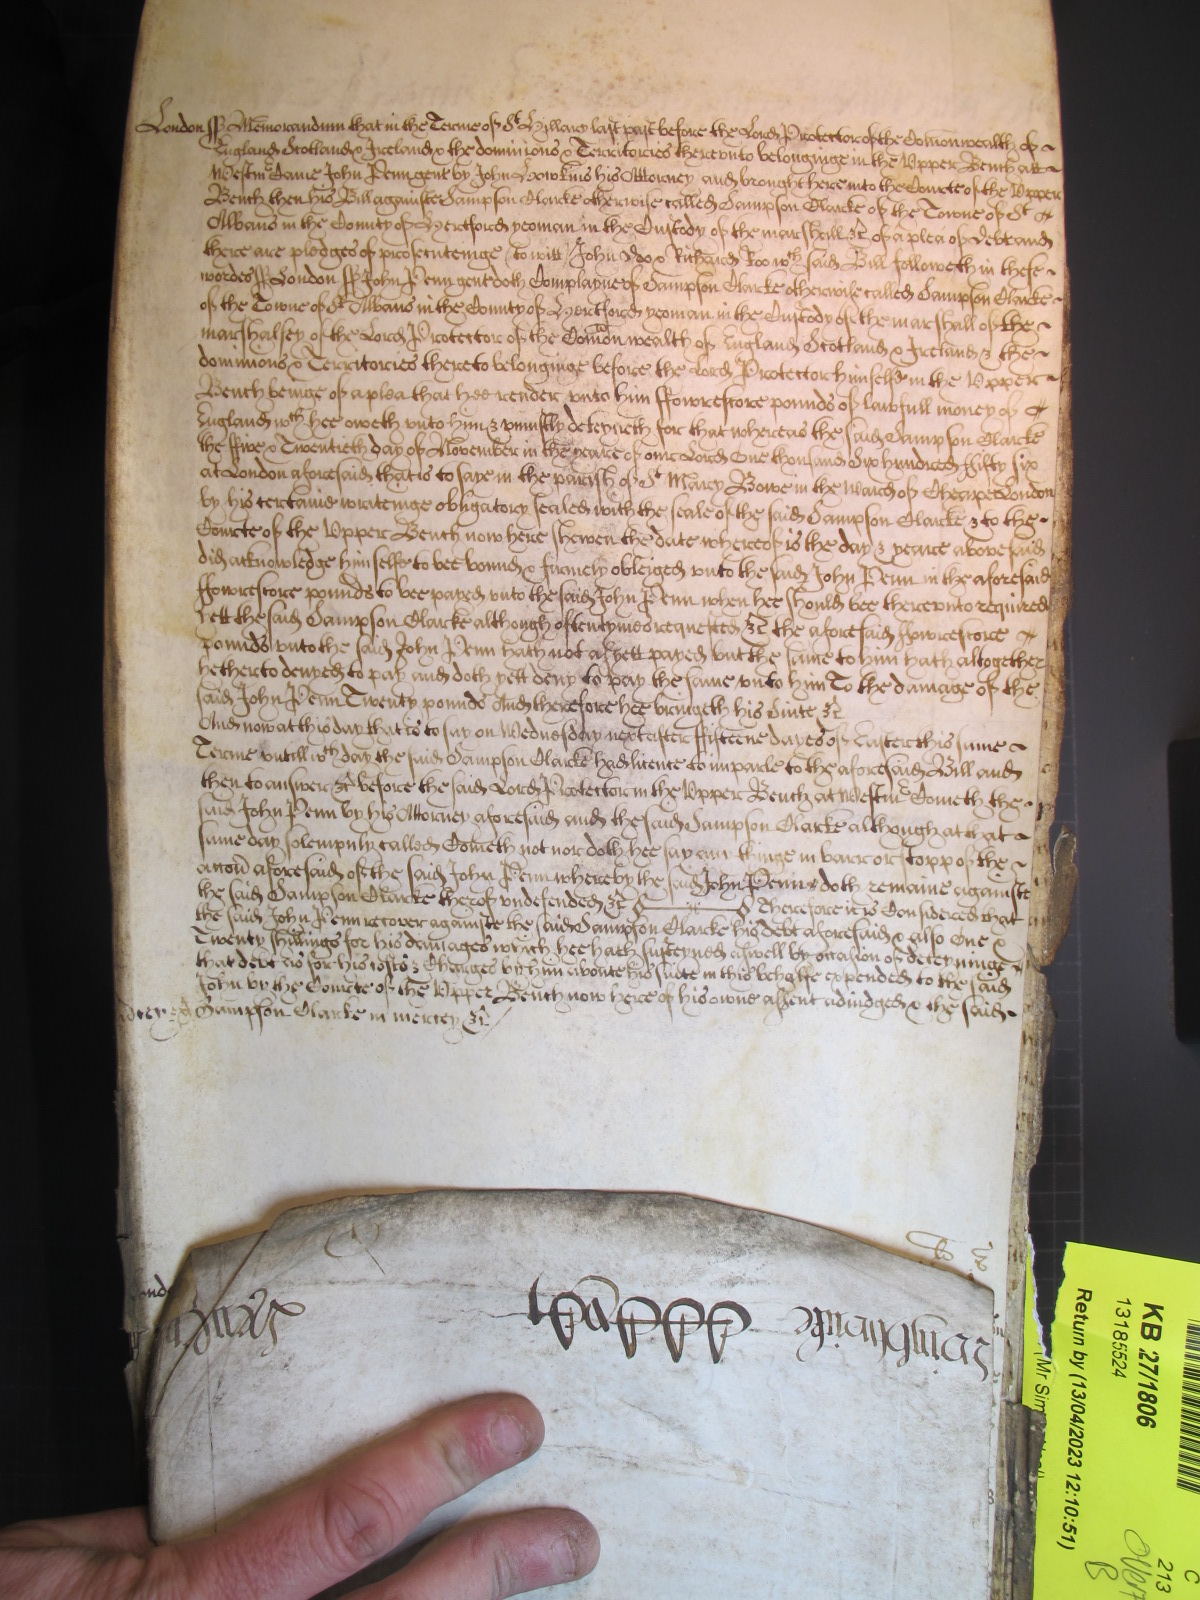 London ss Memorandum that in the Terme of St Hillary last past before the Lord Protector of the Comonwealth of
England Scotland & Ireland & the dominions & Territories thereunto belonginge in the Upper Bench att
Westmr Came John Penn gent by John Hawkins his Attorney and brought here into the Courte of the Upper
Bench then his Bill againste Sampson Clarke otherwise called Sampson Clarke of the Towne of St
Albans in the County of Hertford yeoman in the Custody of the marshall &c of a plea of debt and
there are pledges of prosecuteinge to witt John Doo & Richard Roo wch said Bill followeth in these
wordes ss London ss John Penn gent doth Complayne of Sampson Clarke otherwise called Sampson Clarke
of the Towne of St Albans in the County of Hertford yeoman in the Custody of the marshall of the
marshalsey of the Lord Protector of the Comonwealth of England Scotland & Ireland & the
dominions & Territories thereto belonginge before the Lord Protector himselfe in the Upper
Bench beinge of a plea that hee render unto him ffowrescore pounds of lawfull money of
England wch hee oweth unto him & uniustly deteyneth for that whereas the said Sampson Clarke
the ffive & Twentieth day of November in the yeare of our Lord One thousand Six hundred ffifty six
at London aforesaid that is to saye in the parish of St Mary Bowe in the Ward of Cheape London
by his certaine writeinge obligatory sealed with the seale of the said Sampson Clarke & to the
Courte of the Upper Bench now here shewen the date whereof is the day & yeare abovesaid
did acknowledge himselfe to bee bound & firmely obleiged unto the said John Penn in the aforesaid
ffowrescore pounds to bee payed unto the said John Penn when hee should bee thereunto required
Yett the said Sampson Clarke although oftentymes requested &c the aforesaid ffowrescore
pounds unto the said John Penn hath not as yett payed but the same to him hath altogether
hetherto denyed to pay and doth yett deny to pay the same unto him To the damage of the
said John Penn Twenty pounds And therefore hee bringeth his Suite &c
And now at this day that is to say on Wednesday next after ffifteene dayes of Easter this same
Terme untill wch day the said Sampson Clarke had licence to imparle to the aforesaid Bill and
then to answer &c before the said Lord Protector in the Upper Bench at Westmr Cometh the
said John Penn by his Attorney aforesaid and the said Sampson Clarke although at that
same day solempnly called Cometh not nor doth hee say any thinge in barr or stopp of the
accon aforesaid of the said John Penn whereby the said John Penn doth remaine againste
the said Sampson Clarke therof undefended &c Therefore it is Considered that
the said John Penn recover againste the said Sampson Clarke his debt aforesaid & also One &
Twenty shillings for his damages which hee hath susteyned aswell by occasion of deteyninge
that debt as for his costs & Charges by him aboute his suite in this behalfe expended to the said
John by the Courte of the Upper Bench now here of his owne assent adiudged & the said
Sampson Clarke in mercy &c
KB 27/1806
13185524
Return by (13/04/2023 12:10:51)
C
213